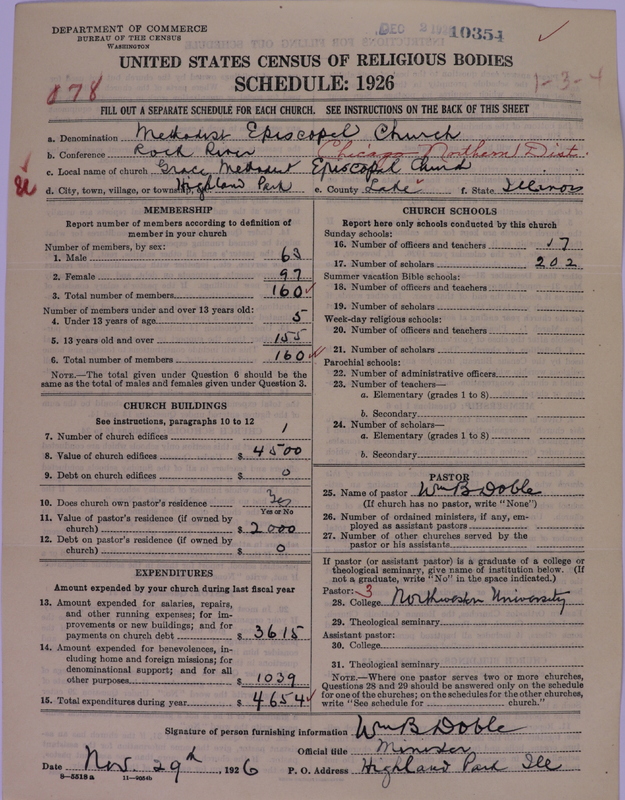 DEPARTMENT OF COMMERCE
BUREAU OF THE CENSUS
WASHINGTON
DEC 2 10354
UNITED STATES CENSUS OF RELIGIOUS BODIES
SCHEDULE: 1926
178
1-3-4
FILL OUT A SEPARATE SCHEDULE FOR EACH CHURCH. SEE INSTRUCTIONS ON THE BACK OF THIS SHEET
a. Denomination Methodist Episcopal Church
b. Conference Rock River Chicago Northern Dist.
c. Local name of church Grace Methodist Episcopal Church
d. City, town, village, or township Highland Park e. County Lake f. State Illinois
MEMBERSHIP
Report number of members according to definition of
member in your church
Number of members, by sex:
1. Male 63
2. Female 97
3. Total number of members 160
Number of members under and over 13 years old:
4. Under 13 years of age 5
5. 13 years old and over 155
6. Total number of members 160
NOTE.—The total given under Question 6 should be the
same as the total of males and females given under Question 3.
CHURCH BUILDINGS
See instructions, paragraphs 10 to 12
7. Number of church edifices 1
8. Value of church edifices $ 4500
9. Debt on church edifices $ 0
10. Does church own pastor's residence Yes
Yes or No
11. Value of pastor's residence (if owned by
church) $ 2000
12. Debt on pastor's residence (if owned by
church) $ 0
EXPENDITURES
Amount expended by your church during last fiscal year
13. Amount expended for salaries, repairs,
and other running expenses; for im-
provements or new buildings; and for
payments on church debt $ 3615
14. Amount expended for benevolences, in-
cluding home and foreign missions; for
denominational support; and for all
other purposes $ 1039
15. Total expenditures during year $ 4654
CHURCH SCHOOLS
Report here only schools conducted by this church
Sunday schools:
16. Number of officers and teachers 17
17. Number of scholars 202
Summer vacation Bible schools:
18. Number of officers and teachers
19. Number of scholars
Week-day religious schools:
20. Number of officers and teachers
21. Number of scholars
Parochial schools:
22. Number of administrative officers
23. Number of teachers—
a. Elementary (grades 1 to 8)
b. Secondary
24. Number of scholars—
a. Elementary (grades 1 to 8)
b. Secondary
PASTOR
25. Name of pastor Wm B Doble
(If church has no pastor, write "None")
26. Number of ordained ministers, if any, em-
ployed as assistant pastors
27. Number of other churches served by the
pastor or his assistants
If pastor (or assistant pastor) is a graduate of a college or
theological seminary, give name of institution below. (If
not a graduate, write "No" in the space indicated.)
Pastor: 3
28. College Northwestern University
29. Theological seminary
Assistant pastor:
30. College
31. Theological seminary
NOTE.—Where one pastor serves two or more churches,
Questions 28 and 29 should be answered only on the schedule
for one of the churches; on the schedules for the other churches,
write "See schedule for church."
Signature of person furnishing information Wm B Doble
Official title Minister
Date Nov. 29th, 1926 P. O. Address Highland Park Ill
8-5518a 11-9054b